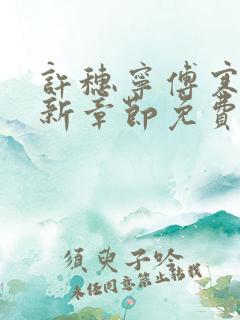 許穗寧傅寒
新章節免費
須臾子吟
未經同意禁止轉載